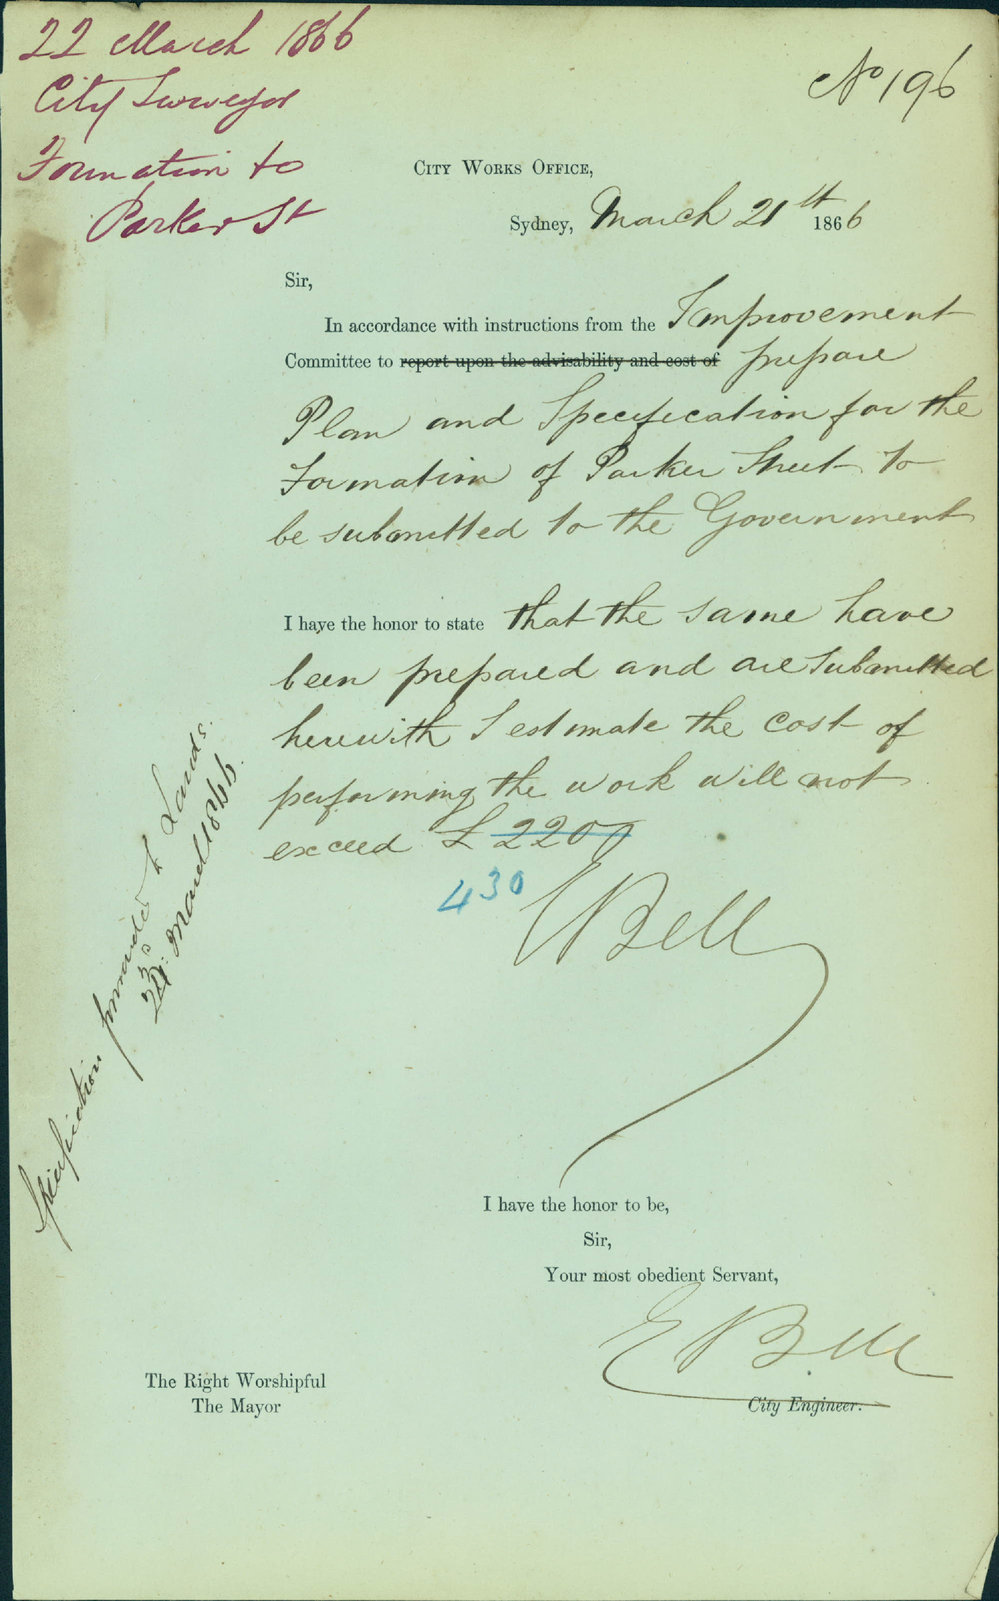 22 March 1866
City Surveyor
Formation to
Parker St
No 196
City Works Office,
Sydney, March 21th 1866
Sir,
In accordance with instructions from the Improvement
Committee to report upon the advisability and cost of prepare
Plan and Specification for the
Formation of Parker Street to
be submitted to the Government
I have the honor to state that the same have
been prepared and are submitted
herewith I estimate the cost of
performing the work will not
exceed £ 2200
430
E Bell
Specification forwarded to Lands.
March 1866.
I have the honor to be,
Sir,
Your most obedient Servant,
E Bell
City Engineer.
The Right Worshipful
The Mayor